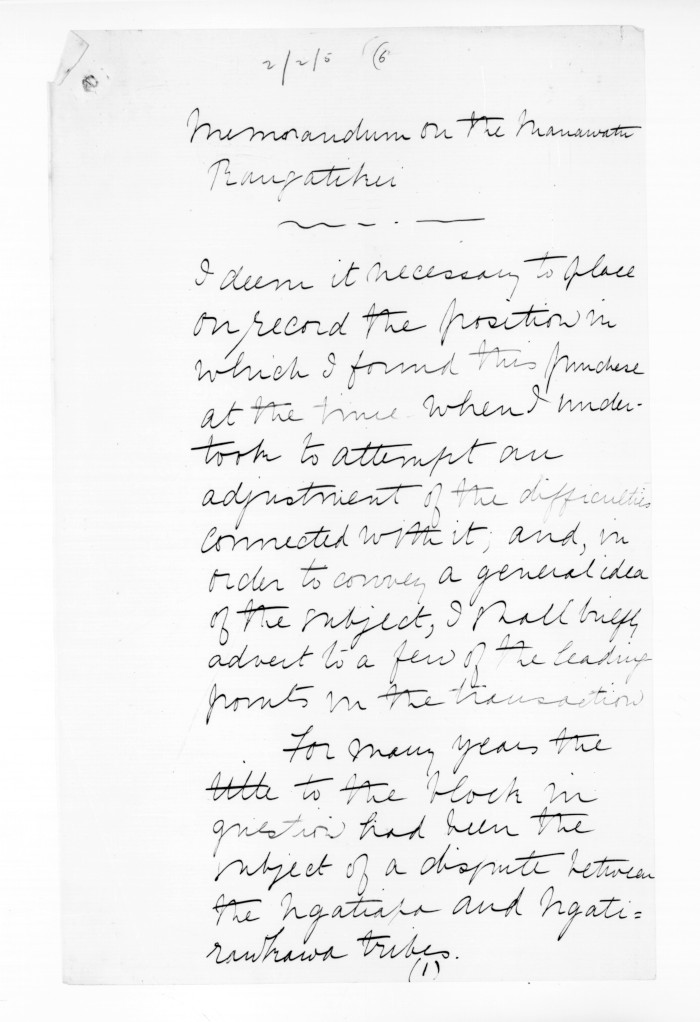 2/2/5 (6
Memorandum on the Manawatu
Rangatikei
I deem it necessary to place
on record the position in
which I found this purchase
at the time when I under-
took to attempt an
adjustment of the difficulties
connected with it; and, in
order to convey a general idea
of the subject, I shall briefly
advert to a few of the leading
points in the transaction
For many years the
title to the block in
question had been the
subject of a dispute between
the Ngatiapa and Ngati=
raukawa tribes.
(1)